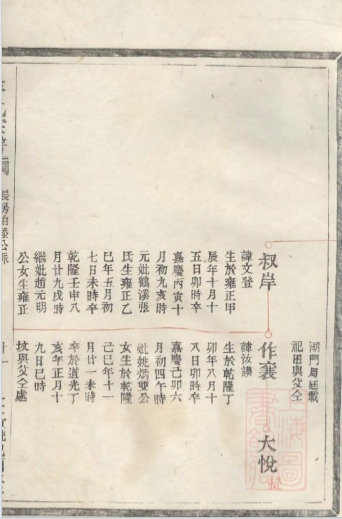 湖門周廷載
祀田與父仝
叔岸
作襄
大悅
諱文登
生於雍正甲
辰年十月十
五日卯時卒
嘉慶丙寅十
月初九亥時
元妣鶴溪張
氏生雍正乙
巳年五月初
七日未時卒
乾隆壬申八
月廿九戌時
繼妣趙元明
公女生雍正
諱汝謙
生於乾隆丁
卯年八月十
八日卯時卒
嘉慶己卯六
月初四午時
妣姚炳雙公
女生於乾隆
己巳年十一
月廿一未時
卒於道光丁
亥年正月十
九日巳時
墳與父仝處